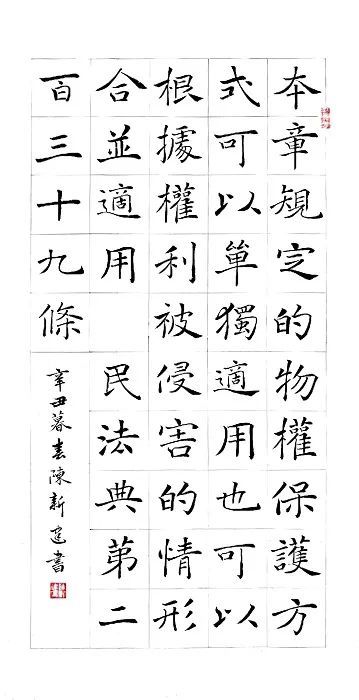 本章規定的物權保護方
式可以單獨適用也可以
根據權利被侵害的情形
合並適用 民法典第二
百三十九條
辛丑暮春陳新建書